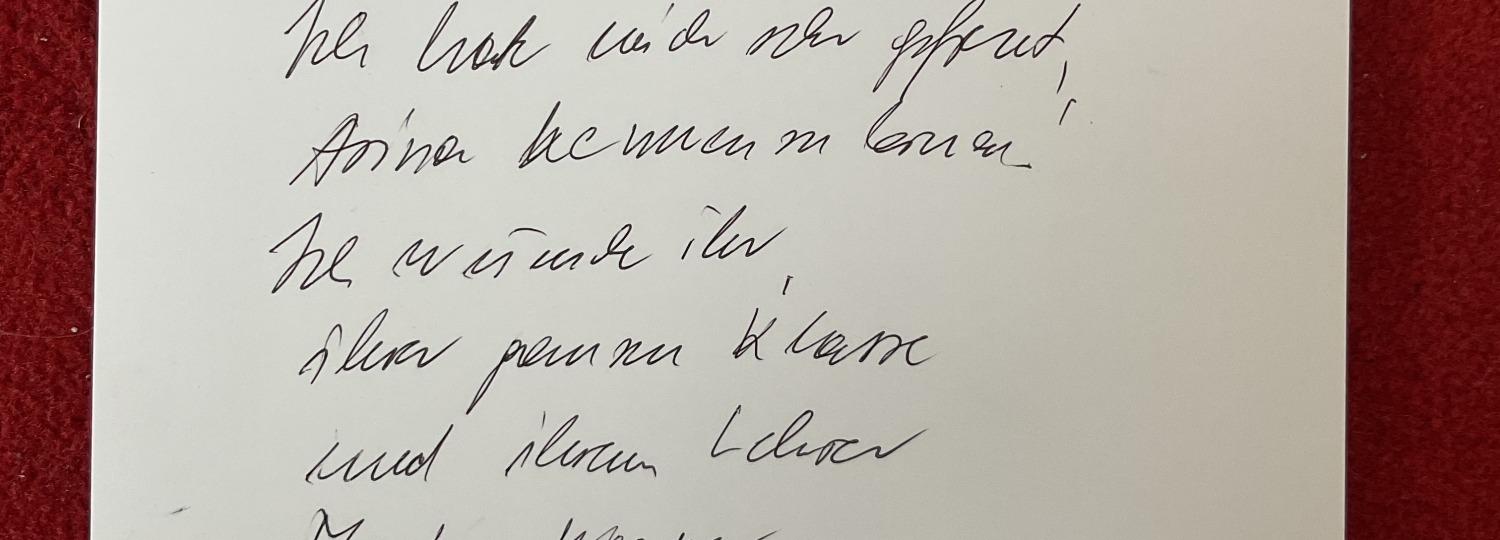 Ich habe mich sehr gefreut,
Arina kennenzulernen!
Ich wünsche ihr,
ihrer ganzen Klasse
und ihrem Lehrer